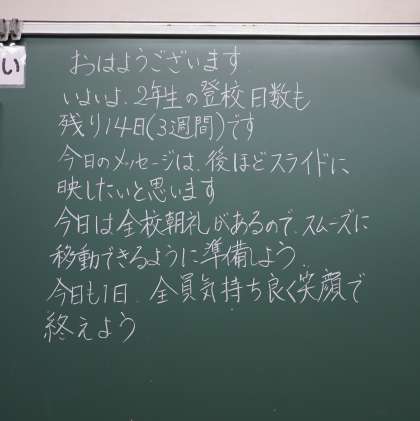 い
おはようございます
いよいよ、2年生の登校日数も
残り14日(3週間)です
今日のメッセージは、後ほどスライドに
映したいと思います
今日は全校朝礼があるので、スムーズに
移動できるように準備しよう
今日も1日、全員気持ち良く笑顔で
終えよう